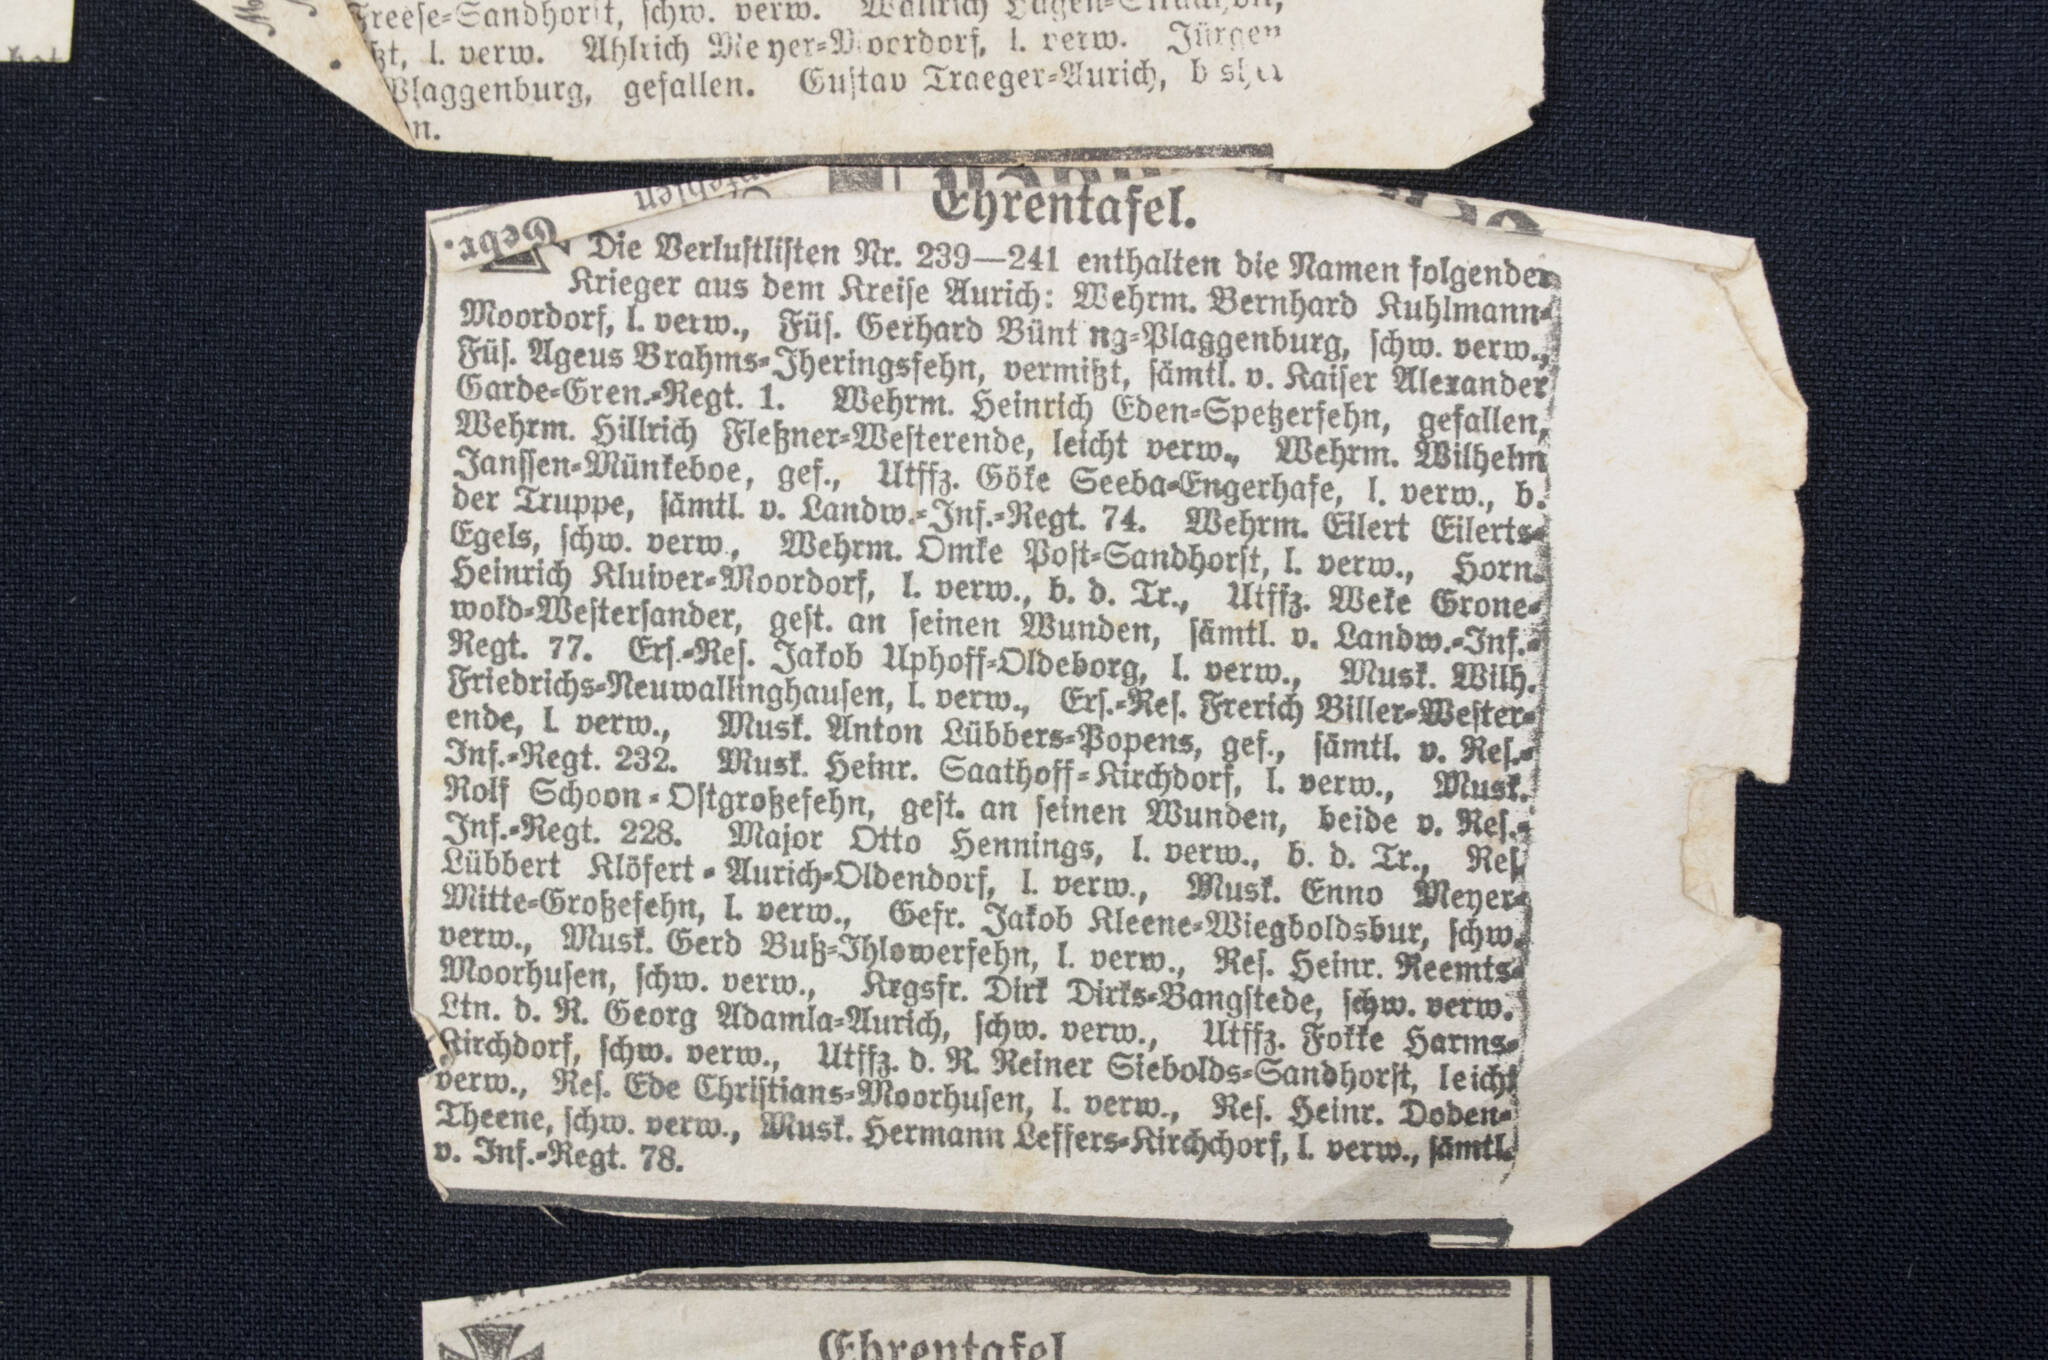 Freese-Sandhorst, schw. verw. Wallrich Hagen-
l. verw. Ahlrich Meyer-Moordorf, l. verw. Jürgen
Plaggenburg, gefallen. Gustav Traeger-Aurich,
n.
Gebr.
Ehrentafel.
Die Verlustlisten Nr. 239—241 enthalten die Namen folgender
Krieger aus dem Kreise Aurich: Wehrm. Bernhard Kuhlmann-
Moordorf, l. verw., Füs. Gerhard Bünt ng-Plaggenburg, schw. verw.,
Füs. Ageus Brahms-Jheringsfehn, vermißt, sämtl. v. Kaiser Alexander
Garde-Gren.-Regt. 1. Wehrm. Heinrich Eden-Spetzerfehn, gefallen,
Wehrm. Hillrich Fleßner-Westerende, leicht verw., Wehrm. Wilhelm
Janssen-Münkeboe, gef., Utffz. Göke Seeba-Engerhafe, l. verw., b.
der Truppe, sämtl. v. Landw.-Inf.-Regt. 74. Wehrm. Eilert Eilerts-
Egels, schw. verw., Wehrm. Omke Post-Sandhorst, l. verw., Horn.
Heinrich Kluiver-Moordorf, l. verw., b. d. Tr., Utffz. Weke Grone-
wold-Westersander, gest. an seinen Wunden, sämtl. v. Landw.-Inf.-
Regt. 77. Ers.-Res. Jakob Uphoff-Oldeborg, l. verw., Musk. Wilh.
Friedrichs-Neuwallinghausen, l. verw., Ers.-Res. Frerich Biller-Wester-
ende, l. verw., Musk. Anton Lübbers-Popens, gef., sämtl. v. Res.-
Inf.-Regt. 232. Musk. Heinr. Saathoff-Kirchdorf, l. verw., Musk.
Rolf Schoon-Ostgroßefehn, gest. an seinen Wunden, beide v. Res.-
Inf.-Regt. 228. Major Otto Hennings, l. verw., b. d. Tr., Res.
Lübbert Klöfert-Aurich-Oldendorf, l. verw., Musk. Enno Meyer-
Mitte-Großefehn, l. verw., Gefr. Jakob Kleene-Wiegboldsbur, schw.
verw., Musk. Gerd Buß-Ihlowerfehn, l. verw., Res. Heinr. Reemts-
Moorhusen, schw. verw., Krgsfr. Dirk Dirks-Bangstede, schw. verw.
Ltn. d. R. Georg Adamla-Aurich, schw. verw., Utffz. Fokke Harms-
Kirchdorf, schw. verw., Utffz. d. R. Reiner Siebolds-Sandhorst, leicht
verw., Res. Ede Christians-Moorhusen, l. verw., Res. Heinr. Doden-
Theene, schw. verw., Musk. Hermann Leffers-Kirchchorf, l. verw., sämtl.
v. Inf.-Regt. 78.
Ehrentafel